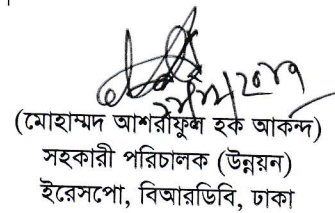 (মোহাম্মদ আশরাফুল হক আকন্দ)
সহকারী পরিচালক (উন্নয়ন)
ইরেসপো, বিআরডিবি, ঢাকা